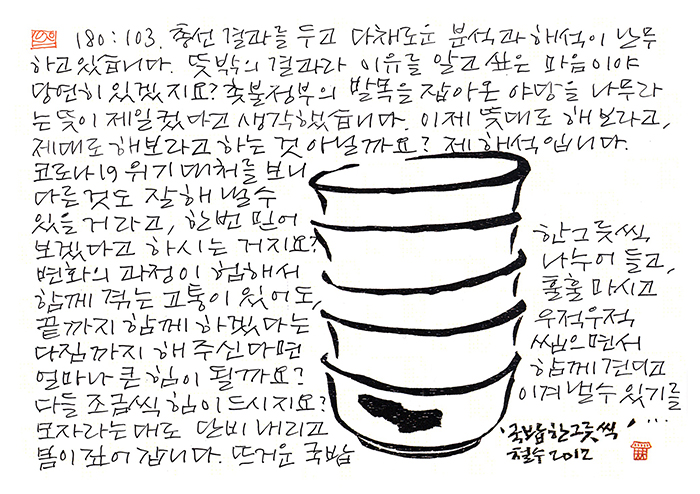 180:103. 총선 결과를 두고 다채로운 분석과 해석이 난무
하고 있습니다. 뜻밖의 결과라 이유를 알고 싶은 마음이야
당연히 있겠지요? 촛불정부의 발목을 잡아온 야당을 나무라
는 뜻이 제일 컸다고 생각했습니다. 이제 뜻대로 해보라고,
제대로 해보라고 하는 것 아닐까요? 제 해석입니다.
코로나19 위기 대처를 보니
다른 것도 잘해 낼 수
있을 거라고, 한번 믿어
보겠다고 하시는 거지요?
변화의 과정이 험해서
함께 겪는 고통이 있어도,
끝까지 함께 하겠다는
다짐까지 해 주신다면
얼마나 큰 힘이 될까요?
다들 조금씩 힘이 드시지요?
모자라는대로 단비 내리고
봄이 짙어 갑니다. 뜨거운 국밥
한그릇씩
나누어 들고,
훌훌 마시고
우적우적
씹으면서
함께 견디고
이겨낼 수 있기를
...
'국밥 한그릇씩'
철수 2012